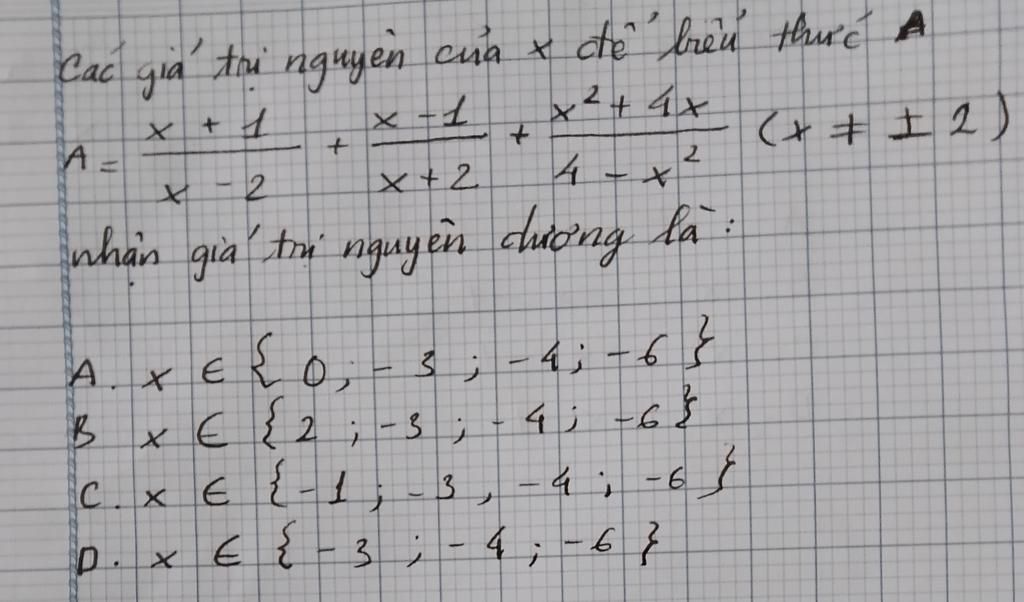 Các giá trị nguyên của x để biểu thức A
A = \frac{x + 1}{x - 2} + \frac{x - 1}{x + 2} + \frac{x^2 + 4x}{4 - x^2} (x ≠ ± 2)
nhận giá trị nguyên dương là:
A. x ∈ { 0; - 3 ; - 4; - 6 }
B x ∈ { 2 ; - 3 ; - 4; - 6 }
C. x ∈ { - 1 ; - 3, - 4 ; - 6 }
D. x ∈ { - 3 ; - 4 ; - 6 }